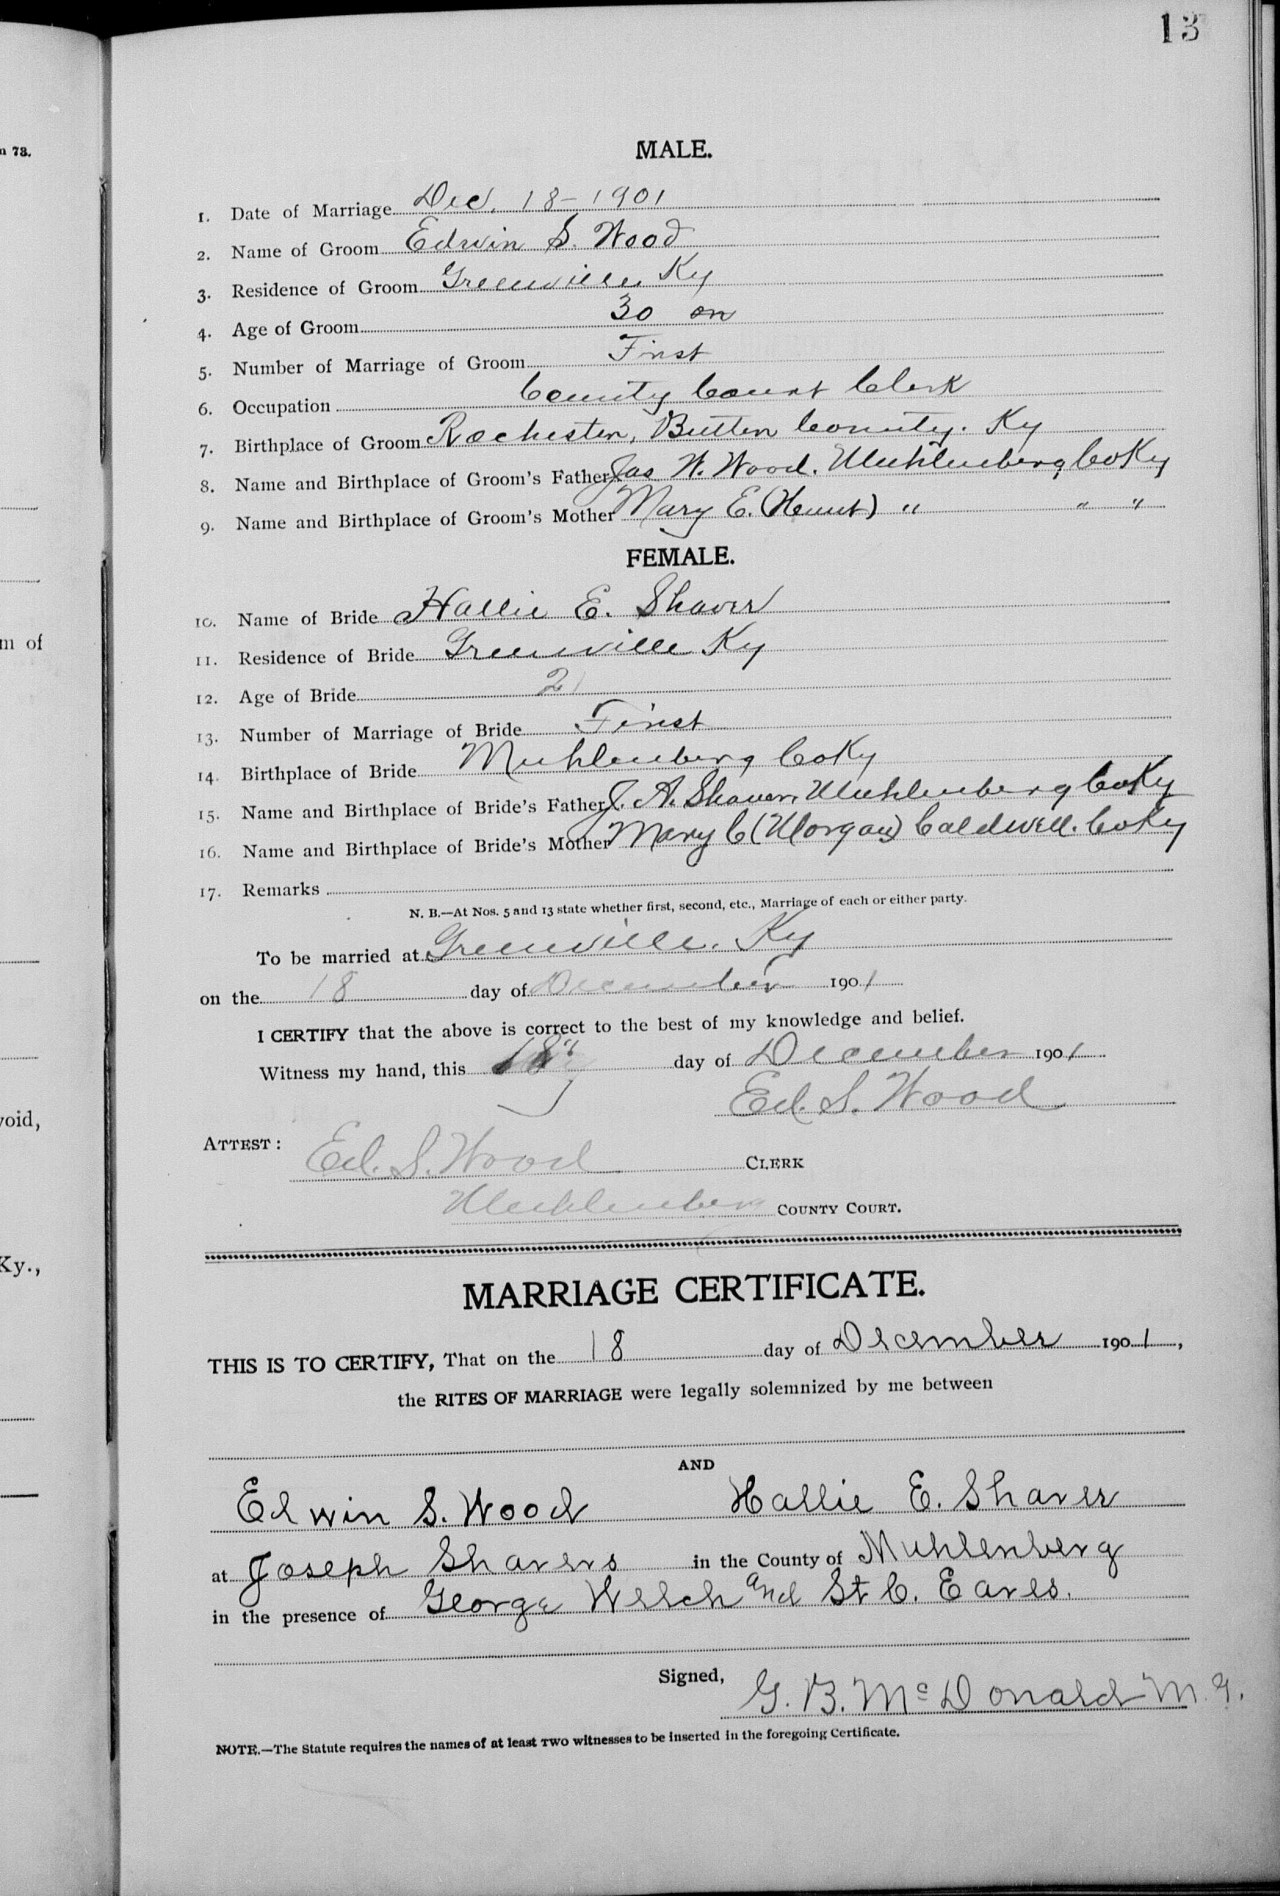 13
n 73.
MALE.
1. Date of Marriage Dec. 18-1901
2. Name of Groom Edwin S. Wood
3. Residence of Groom Greenville Ky
4. Age of Groom 30
5. Number of Marriage of Groom First
6. Occupation County Court Clerk
7. Birthplace of Groom Rochester, Butler County. Ky
8. Name and Birthplace of Groom's Father Jas W. Wood. Muhlenberg Co Ky
9. Name and Birthplace of Groom's Mother Mary E. (Hunt) " " "
FEMALE.
10. Name of Bride Hallie E. Shaver
m of
11. Residence of Bride Greenville Ky
12. Age of Bride 21
13. Number of Marriage of Bride First
14. Birthplace of Bride Muhlenberg Co Ky
15. Name and Birthplace of Bride's Father J. A. Shaver, Muhlenberg Co Ky
16. Name and Birthplace of Bride's Mother Mary C (Morgan) Caldwell. Co Ky
17. Remarks
N. B.—At Nos. 5 and 13 state whether first, second, etc., Marriage of each or either party.
To be married at Greenville. Ky
on the 18 day of December 1901
I CERTIFY that the above is correct to the best of my knowledge and belief.
Witness my hand, this 18 day of December 1901
Ed. S. Wood
void,
ATTEST: Ed. S. Wood CLERK
Muhlenberg COUNTY COURT.
Ky.,
MARRIAGE CERTIFICATE.
THIS IS TO CERTIFY, That on the 18 day of December 1901,
the RITES OF MARRIAGE were legally solemnized by me between
AND
Edwin S. Wood Hallie E. Shaver
at Joseph Shavers in the County of Muhlenberg
in the presence of George Welch and St C. Earls.
Signed, G. B. McDonald M. G.
NOTE.—The Statute requires the names of at least TWO witnesses to be inserted in the foregoing Certificate.